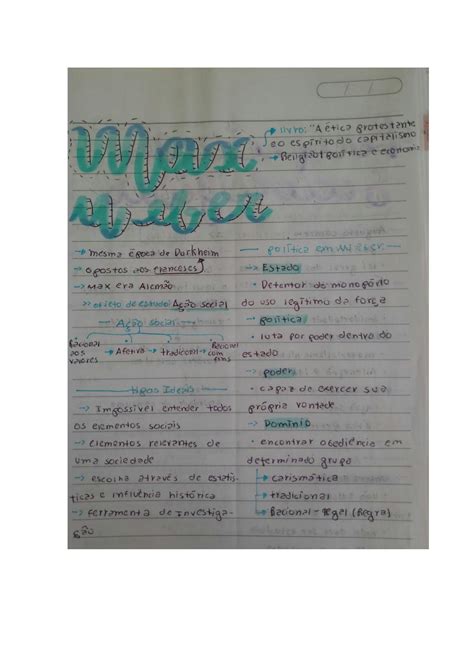 Max
Weber
→ livro: "A ética protestante
e o espírito do capitalismo
→ Religião/política e economia
→ mesma época de Durkheim
→ opostos aos franceses
→ Max era Alemão
→ objeto de estudo: Ação social
Ação social
Racional aos valores → Afetiva → tradicional → Racional com fins
tipos Ideais
→ Impossível entender todos
os elementos sociais
→ elementos relevantes de
uma sociedade
→ escolha através de estatís-
ticas e influência histórica
→ ferramenta de investiga-
ção
política em Weber
→ Estado
• Detentor do monopólio
do uso legítimo da força
política
• luta por poder dentro do
estado
→ poder
• capaz de exercer sua
própria vontade
→ Domínio
• encontrar obediência em
determinado grupo
→ carismática
→ tradicional
→ Racional - legal (Regra)